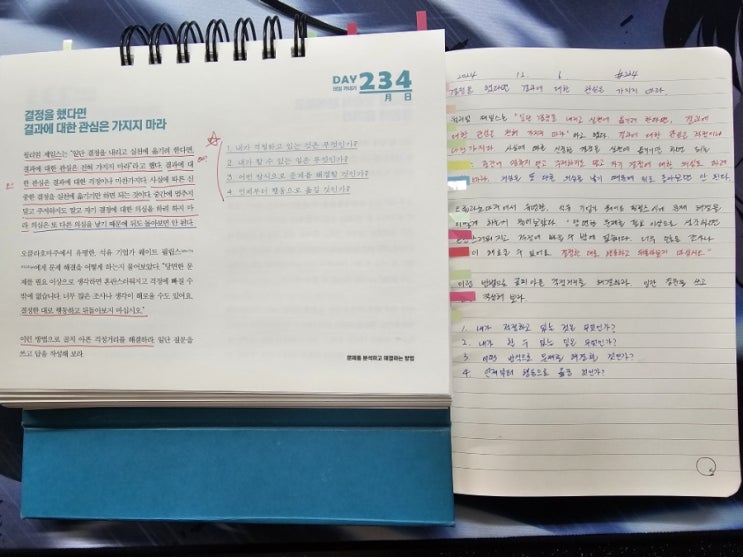 DAY 234
매일 카네기
月 日
결정을 했다면
결과에 대한 관심은 가지지 마라
윌리엄 제임스는 "일단 결정을 내리고 실천에 옮기려 한다면,
결과에 대한 관심은 전혀 가지지 마라"라고 했다. 결과에 대
한 관심은 걱정이나 마찬가지다. 사실에 따른 신
중한 결정을 실천에 옮기기만 하면 되는 것이다. 중간에 멈추지
말고 주저하지도 말고 자기 결정에 대한 의심을 하려 하지 마
라. 의심은 또 다른 의심을 낳기 때문에 뒤도 돌아보면 안 된다.
오클라호마주에서 유명한, 석유 기업가 웨이트 필립스
에게 문제 해결을 어떻게 하는지 물어보았다. "당면한 문
제를 필요 이상으로 생각하면 혼란스러워지고 걱정에 빠질 수
밖에 없습니다. 너무 많은 조사나 생각이 해로울 수도 있어요.
결정한 대로 행동하고 뒤돌아보지 마십시오."
이런 방법으로 골치 아픈 걱정거리를 해결하라. 일단 질문을
쓰고 답을 작성해 보라.
1. 내가 걱정하고 있는 것은 무엇인가?
2. 내가 할 수 있는 일은 무엇인가?
3. 어떤 방식으로 문제를 해결할 것인가?
4. 언제부터 행동으로 옮길 것인가?
문제를 분석하고 해결하는 방법
2024 12 6 #234
결정을 했다면 결과에 대한 관심은 가지지 마라
윌리엄 제임스는 "일단 결정을 내리고 실천에 옮기려 한다면, 결과에
대한 관심은 전혀 가지지 마라"라고 했다. 결과에 대한 관심은 걱정이나
마찬가지다. 사실에 따른 신중한 결정을 실천에 옮기기만 하면 되는
중간에 멈추지 말고 주저하지도 말고 자기 결정에 대한 의심을 하려
마라. 의심은 또 다른 의심을 낳기 때문에 뒤도 돌아보면 안 된다.
오클라호마주에서 유명한, 석유 기업가 웨이트 필립스에게 문제 해결을
어떻게 하는지 물어보았다. "당면한 문제를 필요 이상으로 생각하면
걱정에 빠질 수 밖에 없습니다. 너무 많은 조사나
해로울 수도 있어요. 결정한 대로 행동하고 뒤돌아보지 마십시오."
이런 방법으로 골치 아픈 걱정거리를 해결하라. 일단 질문을 쓰고
작성해 보라.
1. 내가 걱정하고 있는 것은 무엇인가?
2. 내가 할 수 있는 일은 무엇인가?
3. 어떤 방식으로 문제를 해결할 것인가?
4. 언제부터 행동으로 옮길 것인가?